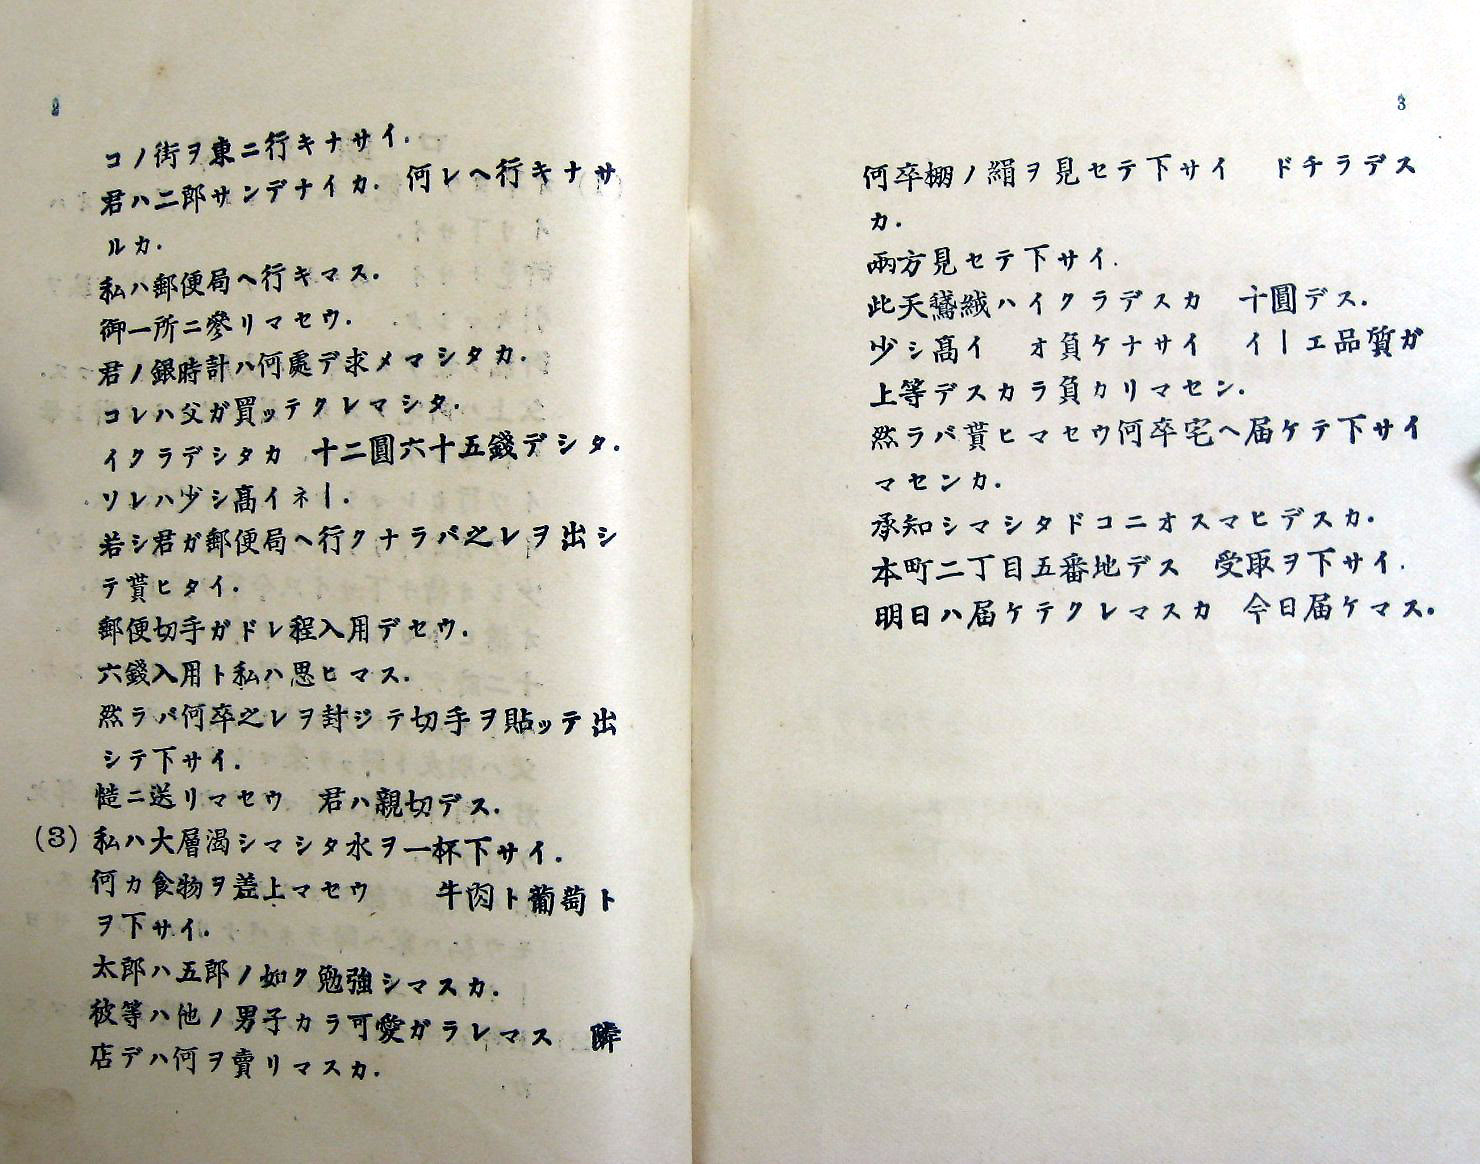 2
コノ街ヲ東ニ行キナサイ.
君ハ二郎サンデナイカ. 何レヘ行キナサ
ルカ.
私ハ郵便局ヘ行キマス.
御一所ニ參リマセウ.
君ノ銀時計ハ何處デ求メマシタカ.
コレハ父ガ買ッテクレマシタ.
イクラデシタカ 十二圓六十五錢デシタ.
ソレハ少シ高イネー.
若シ君ガ郵便局ヘ行クナラバ之レヲ出シ
テ貰ヒタイ.
郵便切手ガドレ程入用デセウ.
六錢入用ト私ハ思ヒマス.
然ラバ何卒之レヲ封ジテ切手ヲ貼ッテ出
シテ下サイ.
慥ニ送リマセウ 君ハ親切デス.
(3) 私ハ大層渴シマシタ水ヲ一杯下サイ.
何カ食物ヲ差上マセウ 牛肉ト葡萄ト
ヲ下サイ.
太郎ハ五郎ノ如ク勉強シマスカ.
彼等ハ他ノ男子カラ可愛ガラレマス 隣
店デハ何ヲ賣リマスカ.
3
何卒棚ノ絹ヲ見セテ下サイ ドチラデス
カ.
兩方見セテ下サイ.
此天鵞絨ハイクラデスカ 十圓デス.
少シ高イ オ負ケナサイ イーエ品質ガ
上等デスカラ負カリマセン.
然ラバ貰ヒマセウ何卒宅ヘ届ケテ下サイ
マセンカ.
承知シマシタドコニオスマヒデスカ.
本町二丁目五番地デス 受取ヲ下サイ.
明日ハ届ケテクレマスカ 今日届ケマス.